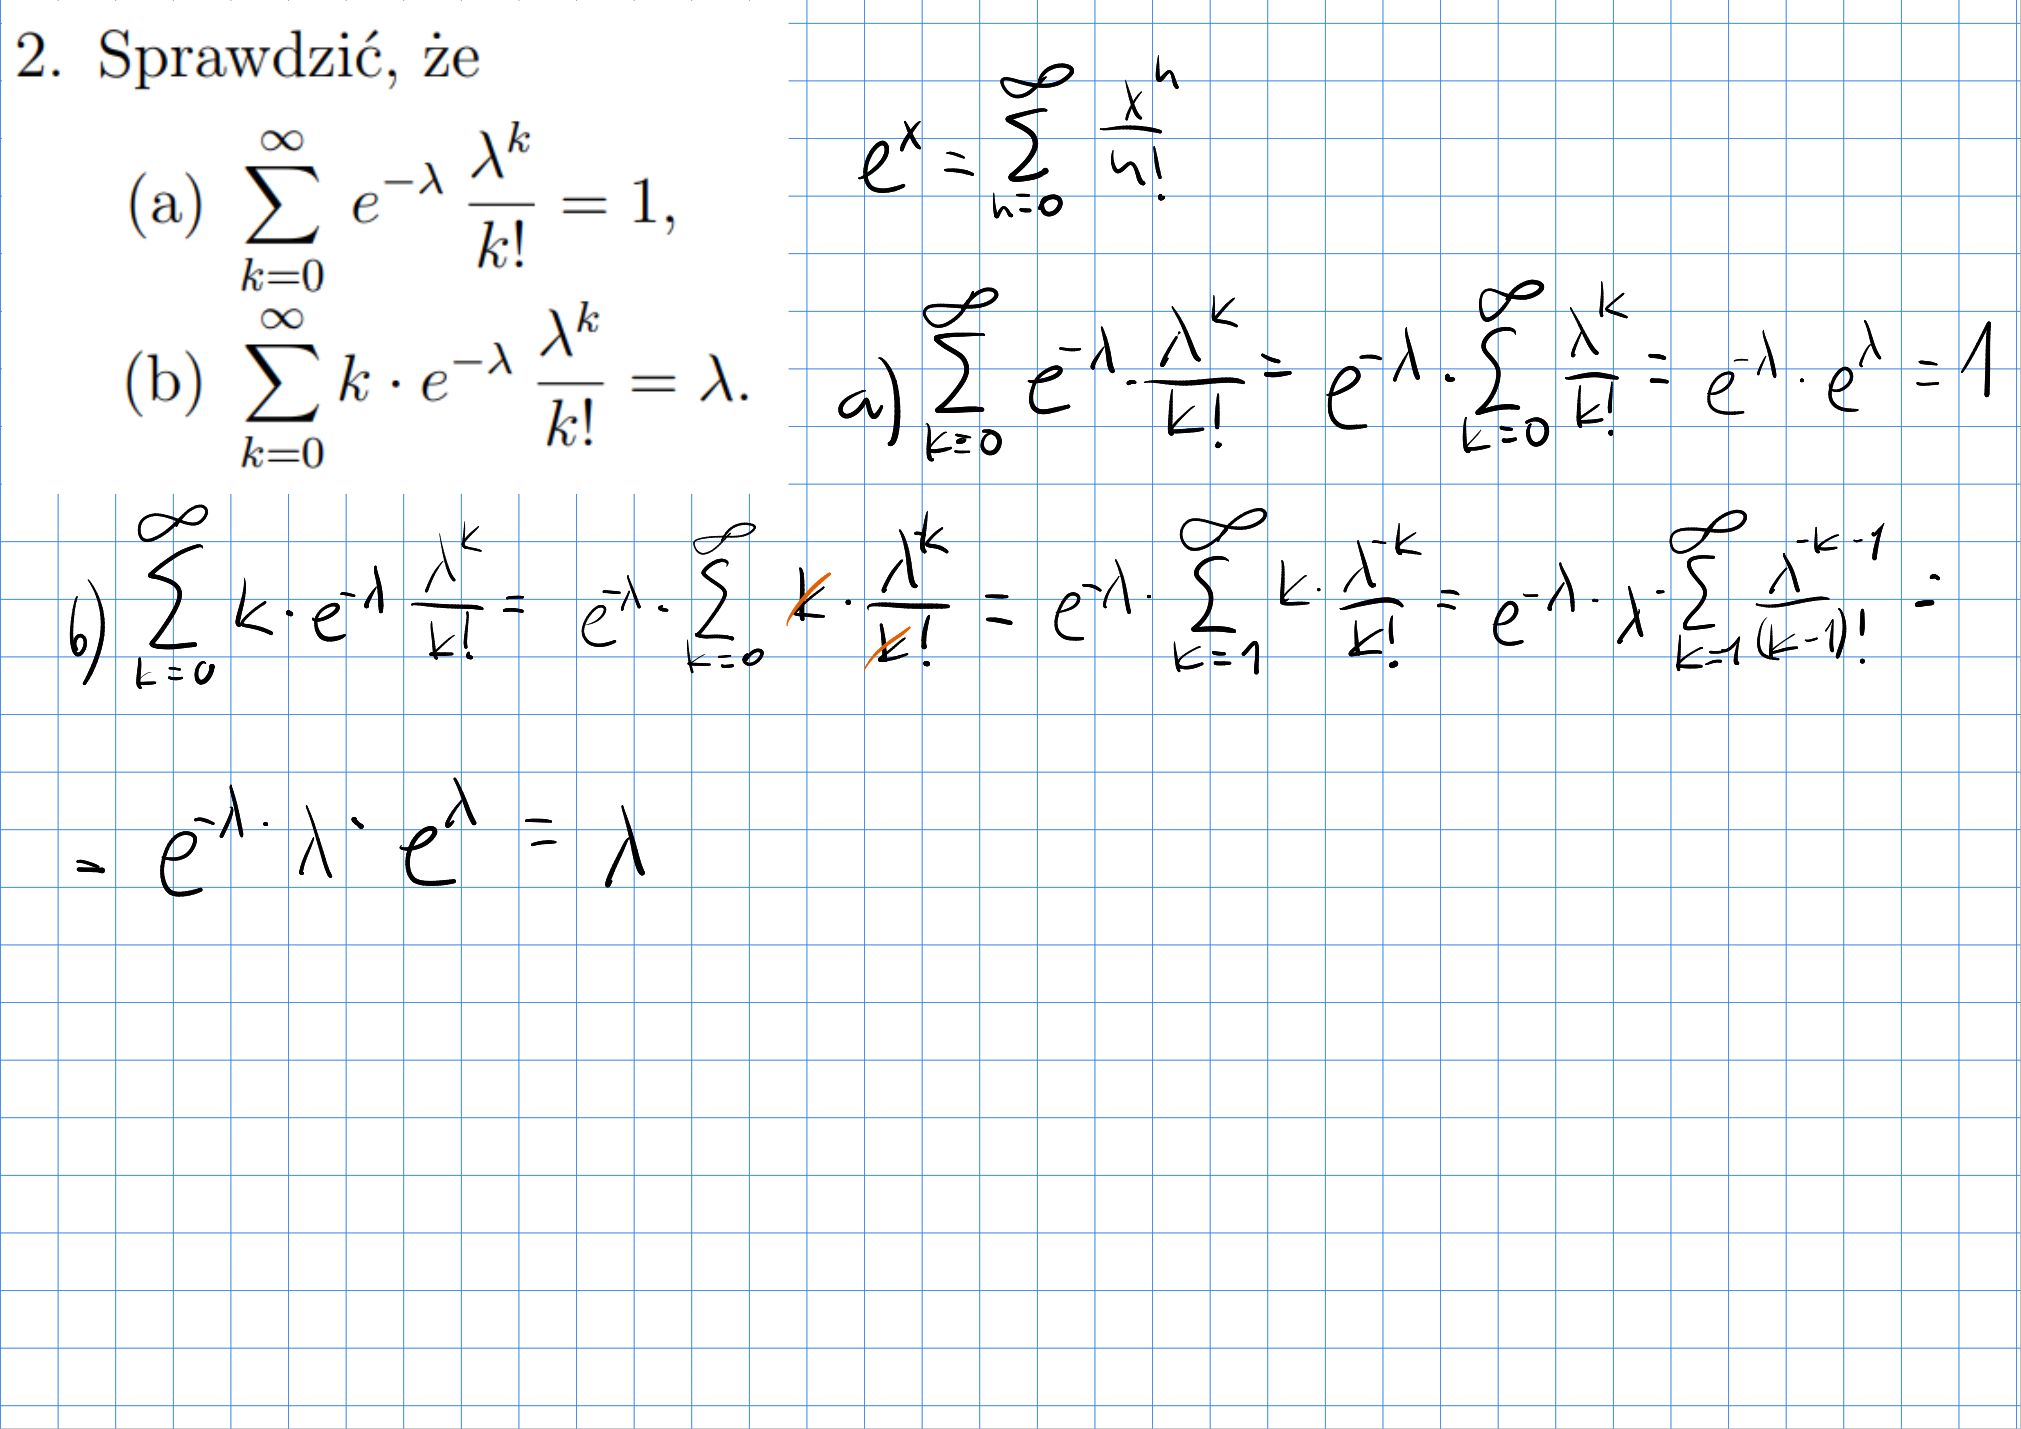 2. Sprawdzić, że
(a) $\sum_{k=0}^{\infty} e^{-\lambda} \frac{\lambda^k}{k!} = 1,$
(b) $\sum_{k=0}^{\infty} k \cdot e^{-\lambda} \frac{\lambda^k}{k!} = \lambda.$
$e^x = \sum_{n=0}^{\infty} \frac{x^n}{n!}$
a) $\sum_{k=0}^{\infty} e^{-\lambda} \cdot \frac{\lambda^k}{k!} = e^{-\lambda} \cdot \sum_{k=0}^{\infty} \frac{\lambda^k}{k!} = e^{-\lambda} \cdot e^{\lambda} = 1$
b) $\sum_{k=0}^{\infty} k \cdot e^{-\lambda} \frac{\lambda^k}{k!} = e^{-\lambda} \cdot \sum_{k=0}^{\infty} k \cdot \frac{\lambda^k}{k!} = e^{-\lambda} \cdot \sum_{k=1}^{\infty} k \cdot \frac{\lambda^{-k}}{k!} = e^{-\lambda} \cdot \lambda \cdot \sum_{k=1}^{\infty} \frac{\lambda^{-k-1}}{(k-1)!} =$
$= e^{-\lambda} \cdot \lambda \cdot e^{\lambda} = \lambda$